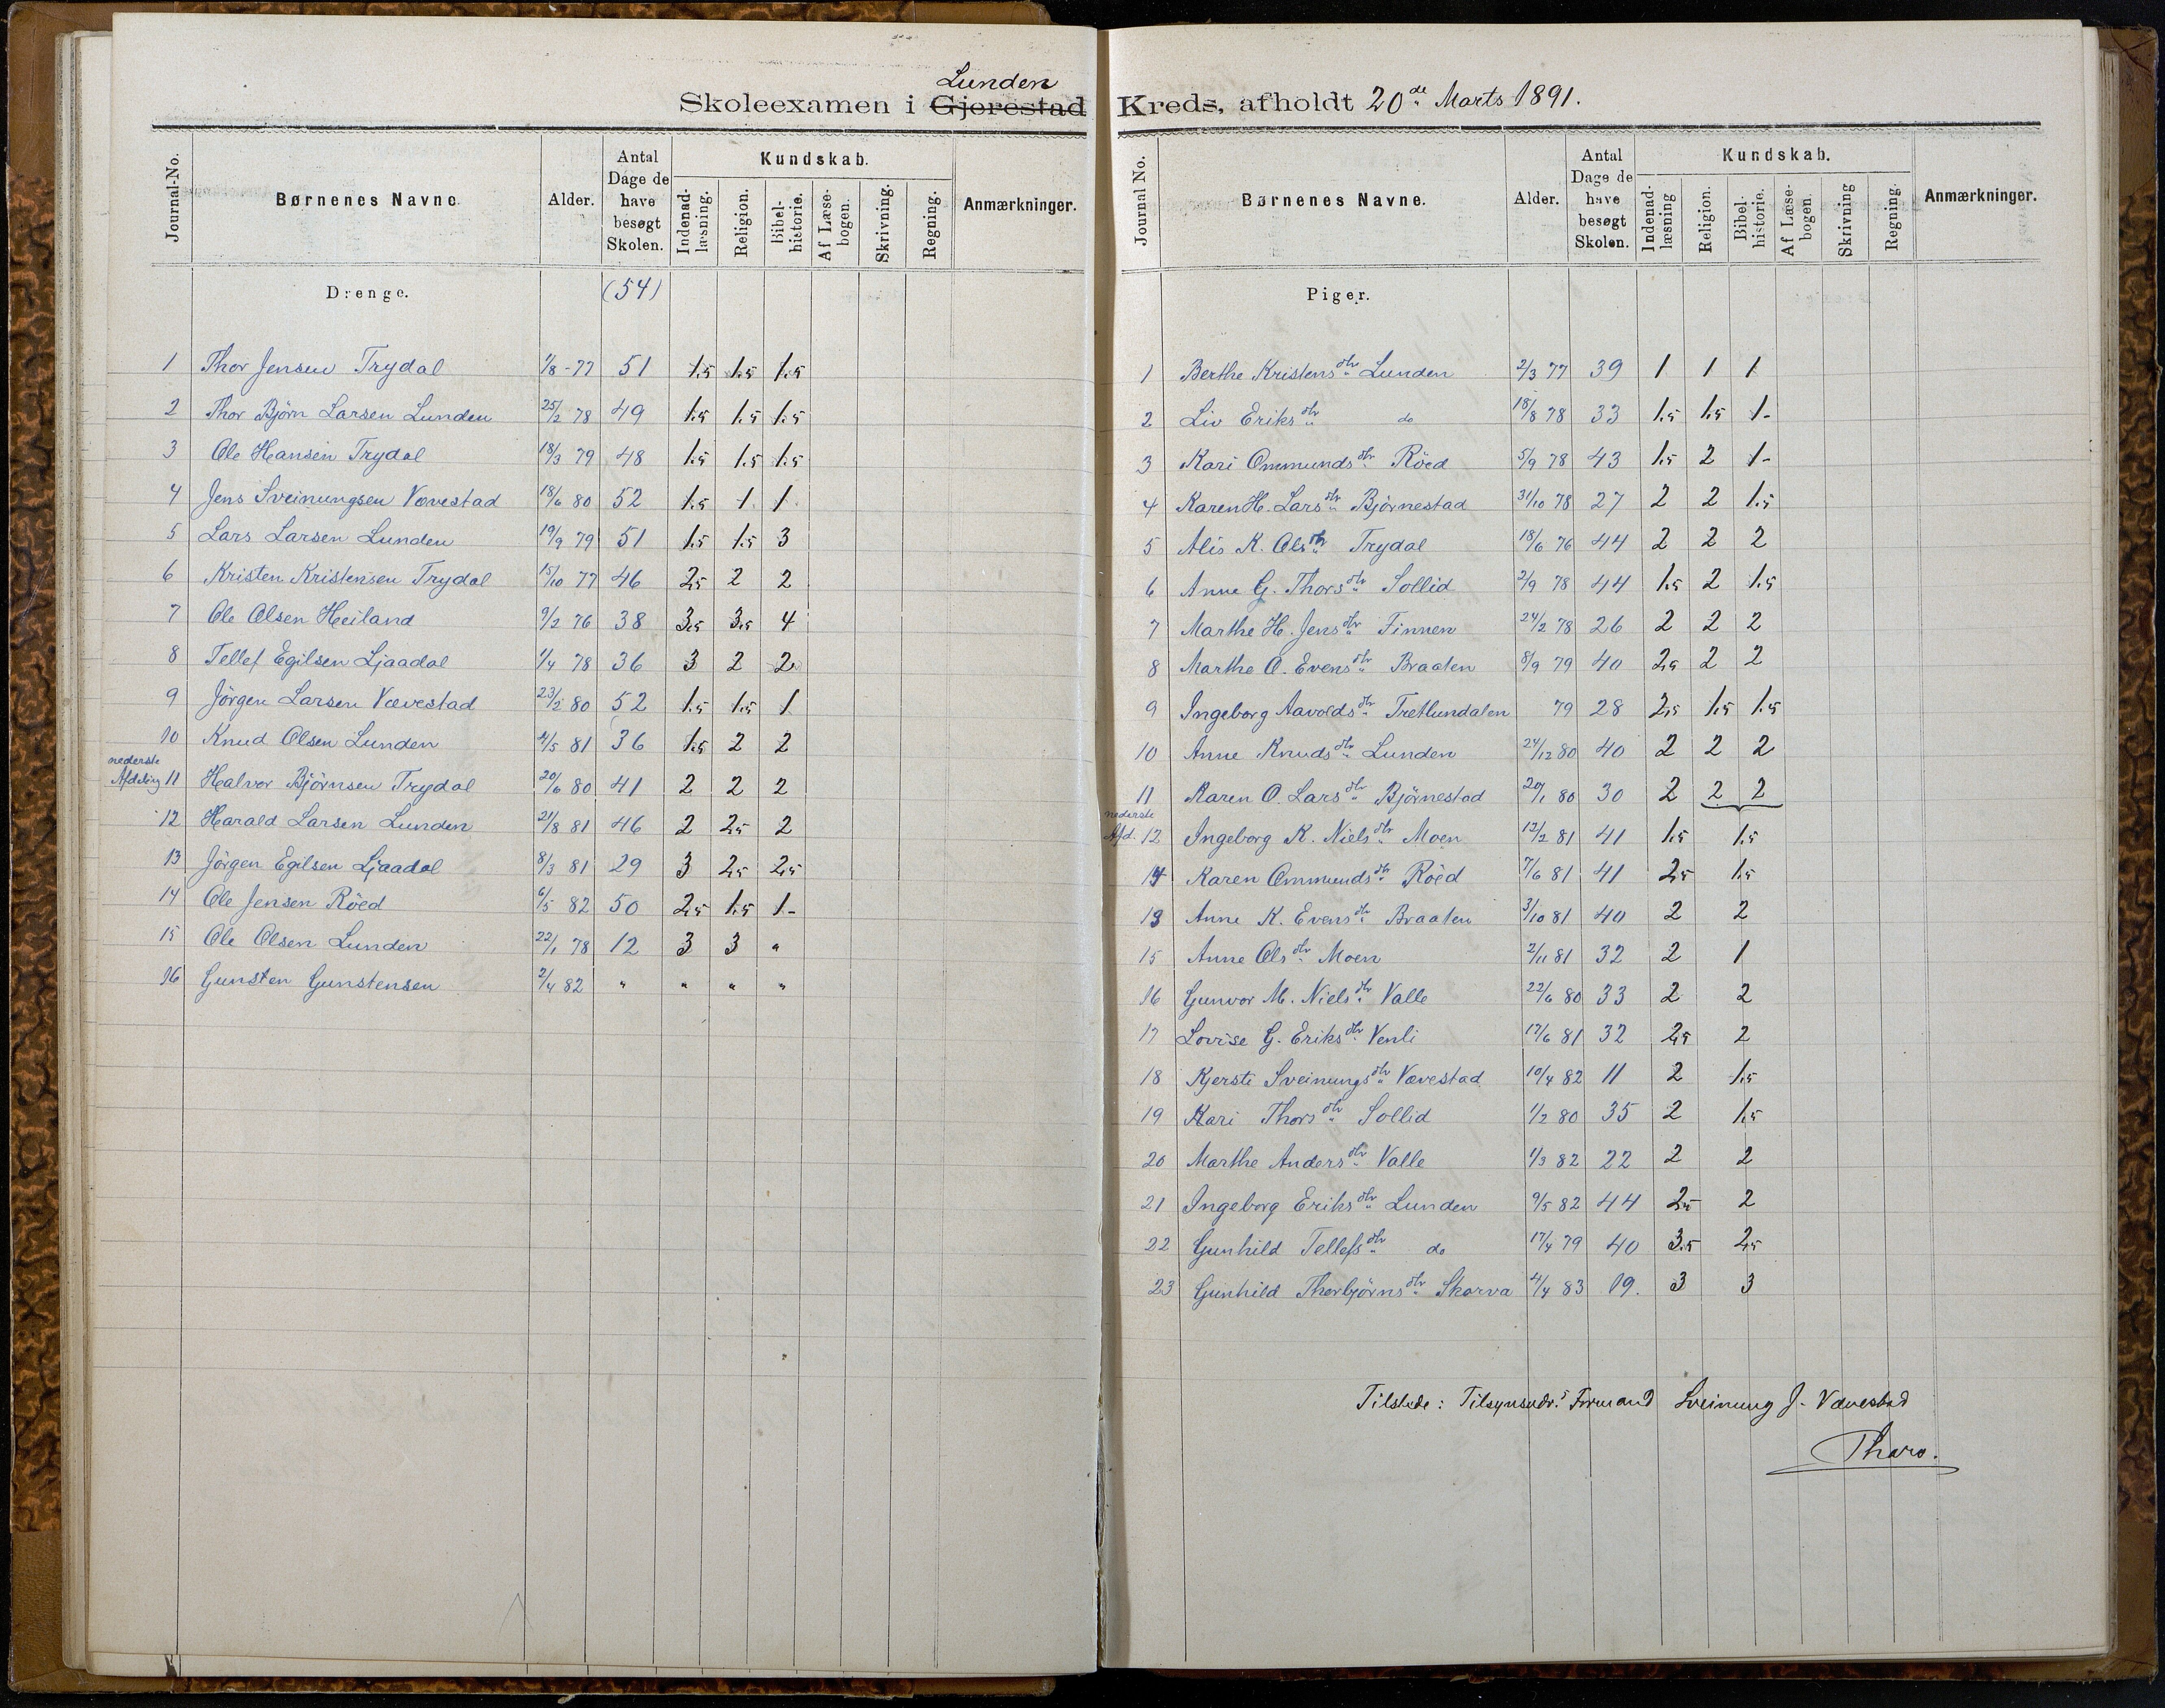 Lunden
Skoleexamen i Gjerestad Kreds, afholdt 20de Marts 1891.
Journal-No. Børnenes Navne. Alder. Antal Dage de have besøgt Skolen. Kundskab. Indenad-læsning. Religion. Bibel-historie. Af Læse-bogen. Skrivning. Regning. Anmærkninger.
Drenge. (54)
1 Thor Jensen Trydal 1/8-77 51 1.5 1.5 1.5
2 Thor Björn Larsen Lunden 25/2 78 49 1.5 1.5 1.5
3 Ole Hansen Trydal 18/3 79 48 1.5 1.5 1.5
4 Jens Sveinungsen Vævestad 18/6 80 52 1.5 1 1
5 Lars Larsen Lunden 19/9 79 51 1.5 1.5 3
6 Kristen Kristensen Trydal 15/10 77 46 2,5 2 2
7 Ole Olsen Heiland 9/2 76 38 3,5 3,5 4
8 Tellef Egilsen Ljaadal 1/4 78 36 3 2 2
9 Jörgen Larsen Vævestad 23/2 80 52 1.5 1.5 1
10 Knud Olsen Lunden 4/5 81 36 1.5 2 2
nederste
Afdeling 11 Halvor Björnsen Trydal 20/6 80 41 2 2 2
12 Harald Larsen Lunden 21/8 81 46 2 2,5 2
13 Jörgen Egilsen Ljaadal 8/3 81 29 3 2,5 2,5
14 Ole Jensen Röed 6/5 82 50 2,5 1.5 1-
15 Ole Olsen Lunden 22/1 78 12 3 3 "
16 Gunsten Gunstensen 2/4 82 " " " "
Journal No. Børnenes Navne. Alder. Antal Dage de have besøgt Skolen. Kundskab. Indenad-læsning Religion. Bibel-historie. Af Læse-bogen. Skrivning Regning. Anmærkninger.
Piger.
1 Berthe Kristensdtr Lunden 2/3 77 39 1 1 1
2 Liv Eriksdtr do 18/8 78 33 1.5 1.5 1-
3 Kari Ommundsdtr Röed 5/9 78 43 1.5 2 1-
4 Karen H. Larsdtr Björnestad 31/10 78 27 2 2 1.5
5 Alis K. Olsdtr Trydal 18/6 76 44 2 2 2
6 Anne G. Thorsdtr Sollid 2/9 78 44 1.5 2 1.5
7 Marthe H. Jensdtr Finnen 24/2 78 26 2 2 2
8 Marthe O. Evensdtr Braaten 8/9 79 40 2,5 2 2
9 Ingeborg Aavoldsdtr Tretlundalen 79 28 2,5 1.5 1.5
10 Anne Knudsdtr Lunden 24/12 80 40 2 2 2
11 Karen O. Larsdtr Björnestad 20/1 80 30 2 2 2
nederste
Afd. 12 Ingeborg K. Nielsdtr Moen 12/2 81 41 1.5 1.5
14 Karen Ommundsdtr Röed 7/6 81 41 2,5 1.5
13 Anne K. Evensdtr Braaten 3/10 81 40 2 2
15 Anne Olsdtr Moen 2/11 81 32 2 1
16 Gunvor M. Nielsdtr Valle 22/6 80 33 2 2
17 Lovise G. Eriksdtr Venli 17/6 81 32 2,5 2
18 Kjersti Sveinungsdtr Vævestad 10/4 82 11 2 1.5
19 Kari Thorsdtr Sollid 1/2 80 35 2 1.5
20 Marthe Andersdtr Valle 1/3 82 22 2 2
21 Ingeborg Eriksdtr Lunden 9/5 82 44 2,5 2
22 Gunhild Tellefsdtr do 17/4 79 40 3.5 2,5
23 Gunhild Thorbjörnsdtr Skorva 4/4 83 19. 3 3
Tilstede: Tilsynsudv.s Formand Sveinung J. Vævestad
Tharo.